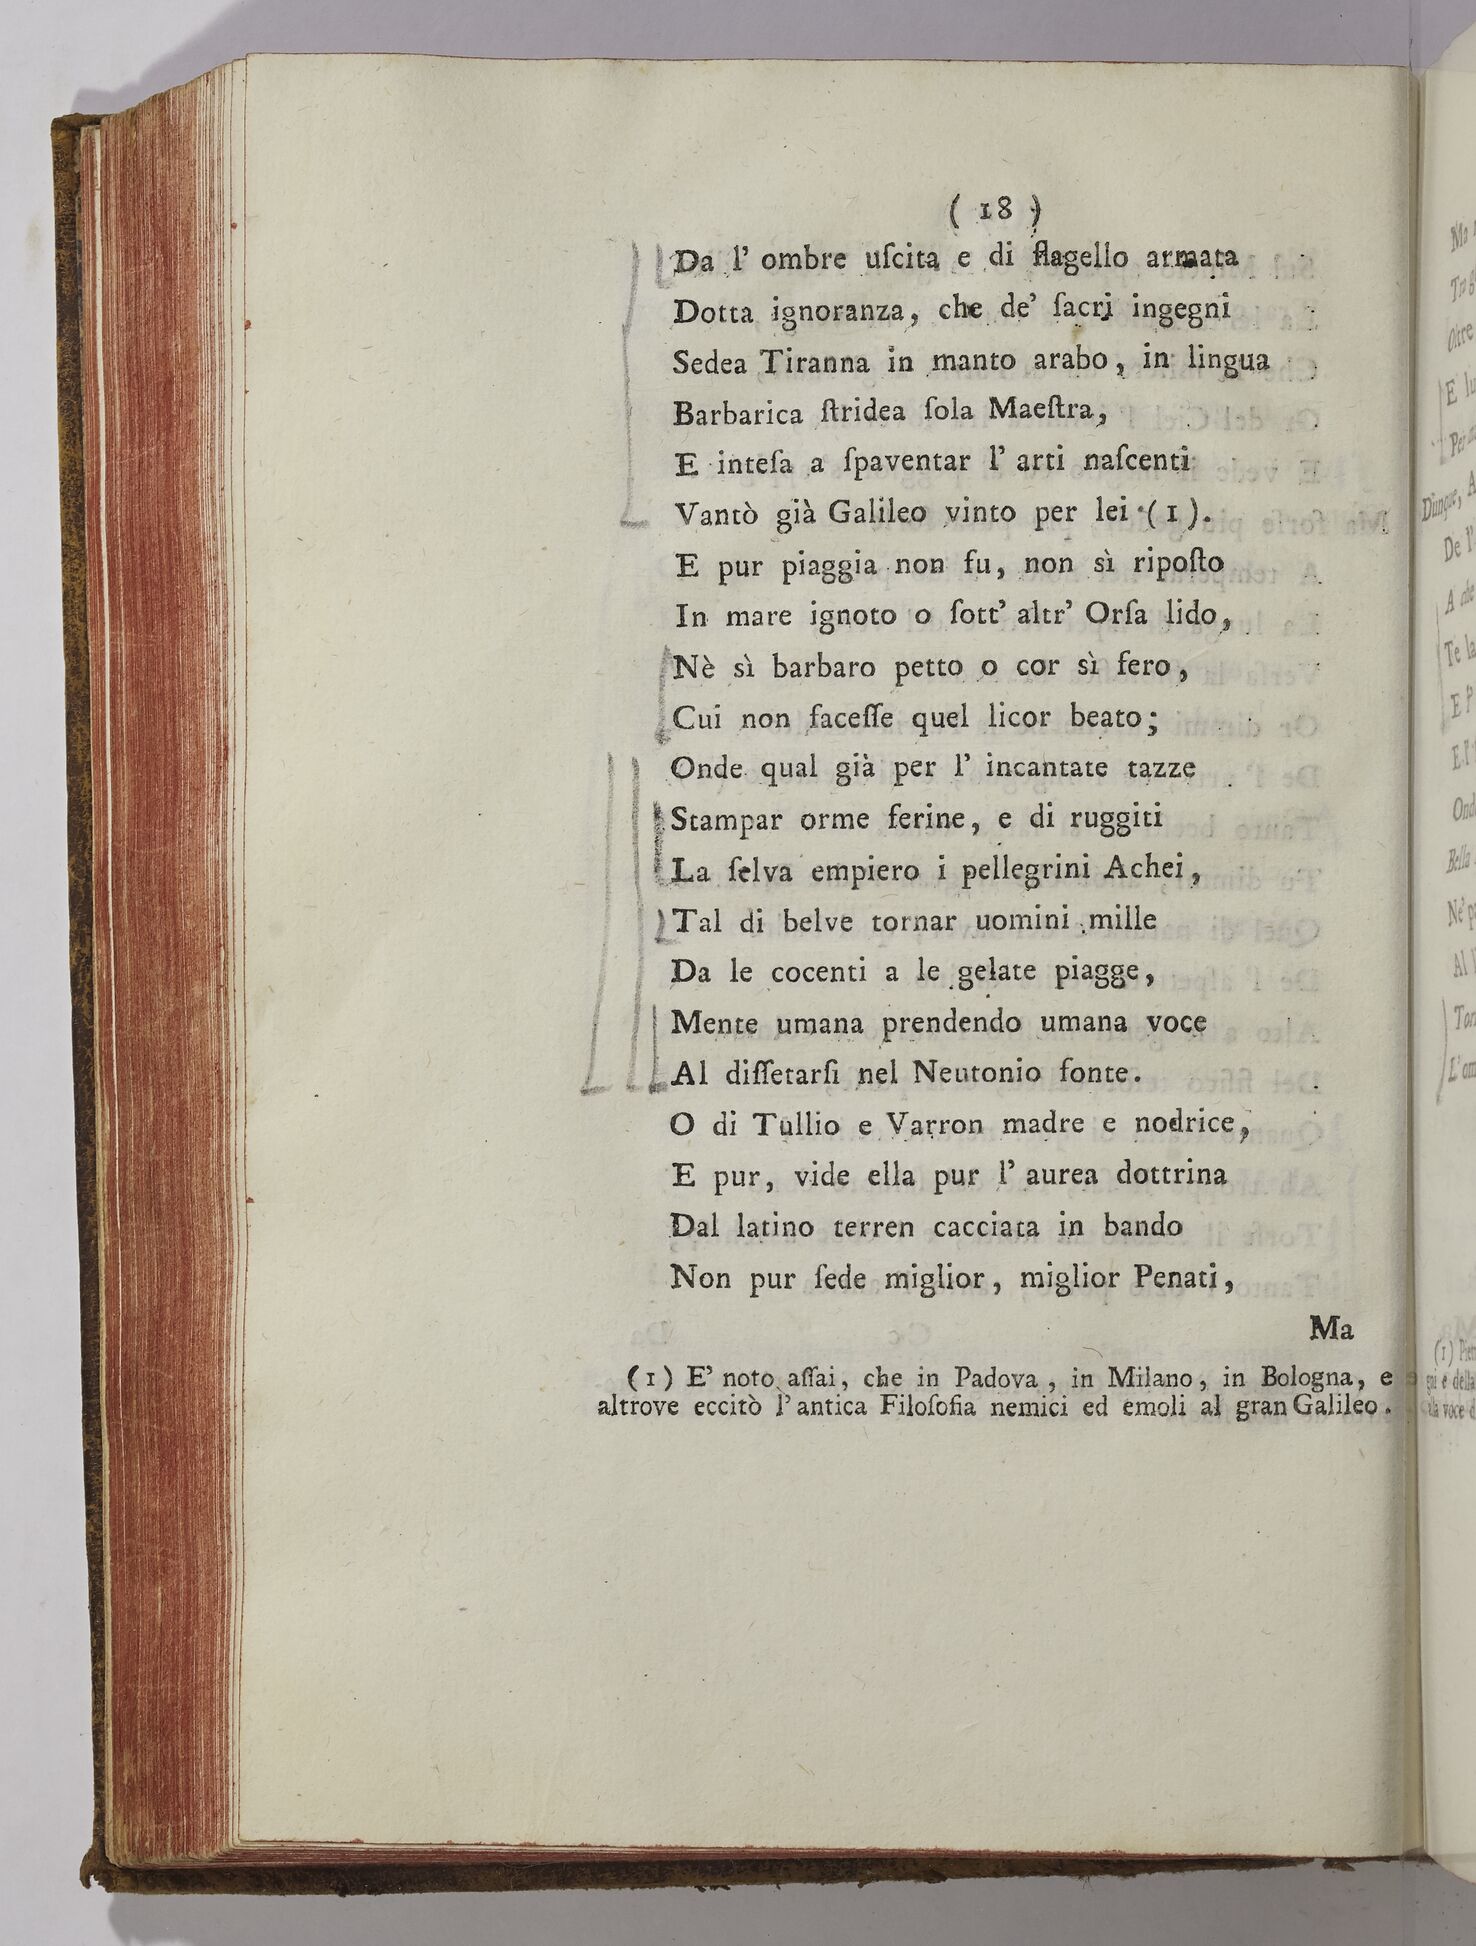 ( 18 )
Da l' ombre uſcita e di flagello armata
Dotta ignoranza, che de' ſacri ingegni
Sedea Tiranna in manto arabo, in lingua
Barbarica ſtridea ſola Maeſtra,
E inteſa a ſpaventar l' arti naſcenti
Vantò già Galileo vinto per lei (1).
E pur piaggia non fu, non sì ripoſto
In mare ignoto o ſott' altr' Orſa lido,
Nè sì barbaro petto o cor sì fero,
Cui non faceſſe quel licor beato;
Onde qual già per l' incantate tazze
Stampar orme ferine, e di ruggiti
La ſelva empiero i pellegrini Achei,
Tal di belve tornar uomini mille
Da le cocenti a le gelate piagge,
Mente umana prendendo umana voce
Al diſſetarſi nel Neutonio fonte.
O di Tullio e Varron madre e nodrice,
E pur, vide ella pur l' aurea dottrina
Dal latino terren cacciata in bando
Non pur ſede miglior, miglior Penati,
Ma
(1) E' noto aſſai, che in Padova, in Milano, in Bologna, e
altrove eccitò l'antica Filoſofia nemici ed emoli al gran Galileo.
Ma
Oltre
E lu
Dunque, A
De l'
A che
Te la
E
Bella
Al
L'om
(1) Piet
gui e della
la voce d